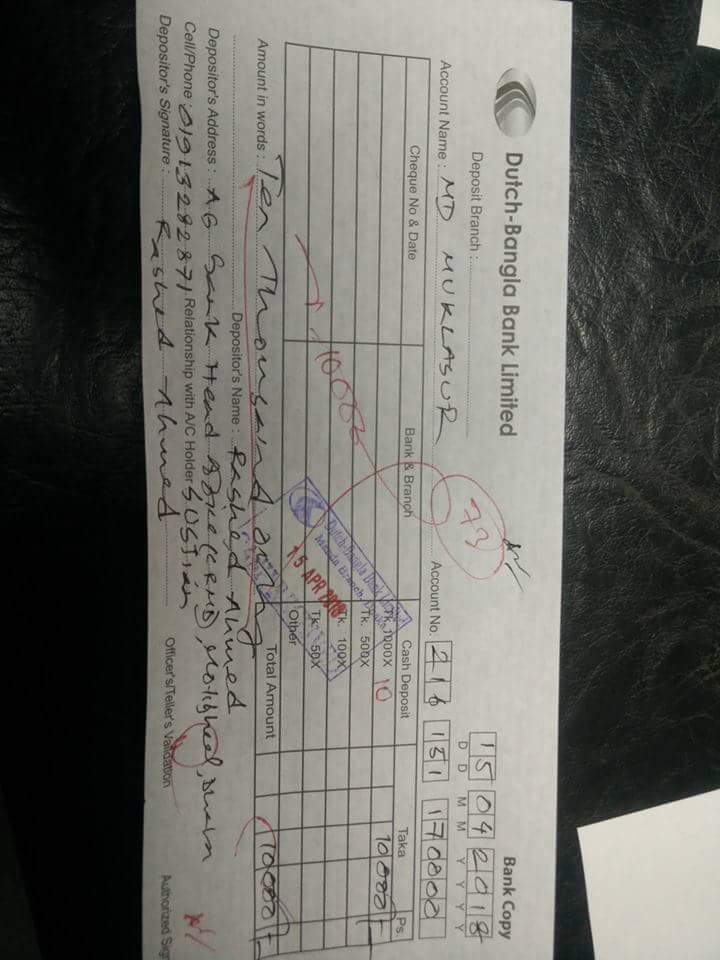 Dutch-Bangla Bank Limited
Bank Copy
Deposit Branch :
15 04 2018
D D M M Y Y Y Y
73
Account Name : MD MUKLASUR
Account No. 216 151 170000
Cheque No & Date Bank & Branch Cash Deposit Taka Ps.
Tk. 1000X 10 10000/-
Tk. 500X
Tk. 100X
Tk. 50X
Other
Dutch-Bangla Bank Limited
Branch
15 APR 2018
Total Amount 10000/-
Amount in words : Ten Thousand only
Depositor's Name : Rashed Ahmed
Depositor's Address : AG Bank Head Office (CRMD), Motijheel, Dhaka
Cell/Phone : 01913282871 Relationship with A/C Holder
Depositor's Signature : Rashed Ahmed Officer's/Teller's Validation Authorized Sig